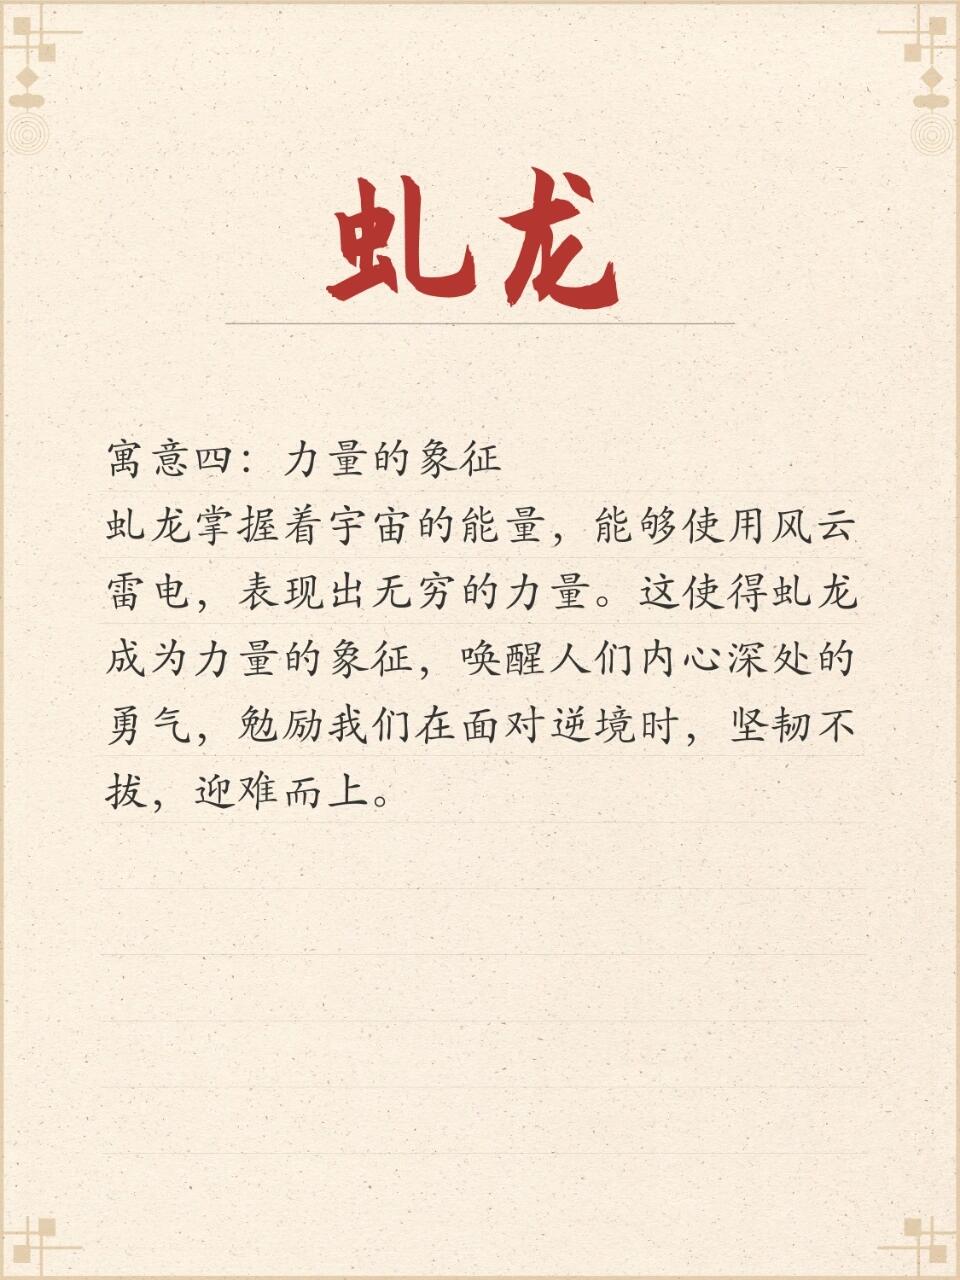 虬龙
寓意四：力量的象征
虬龙掌握着宇宙的能量，能够使用风云
雷电，表现出无穷的力量。这使得虬龙
成为力量的象征，唤醒人们内心深处的
勇气，勉励我们在面对逆境时，坚韧不
拔，迎难而上。